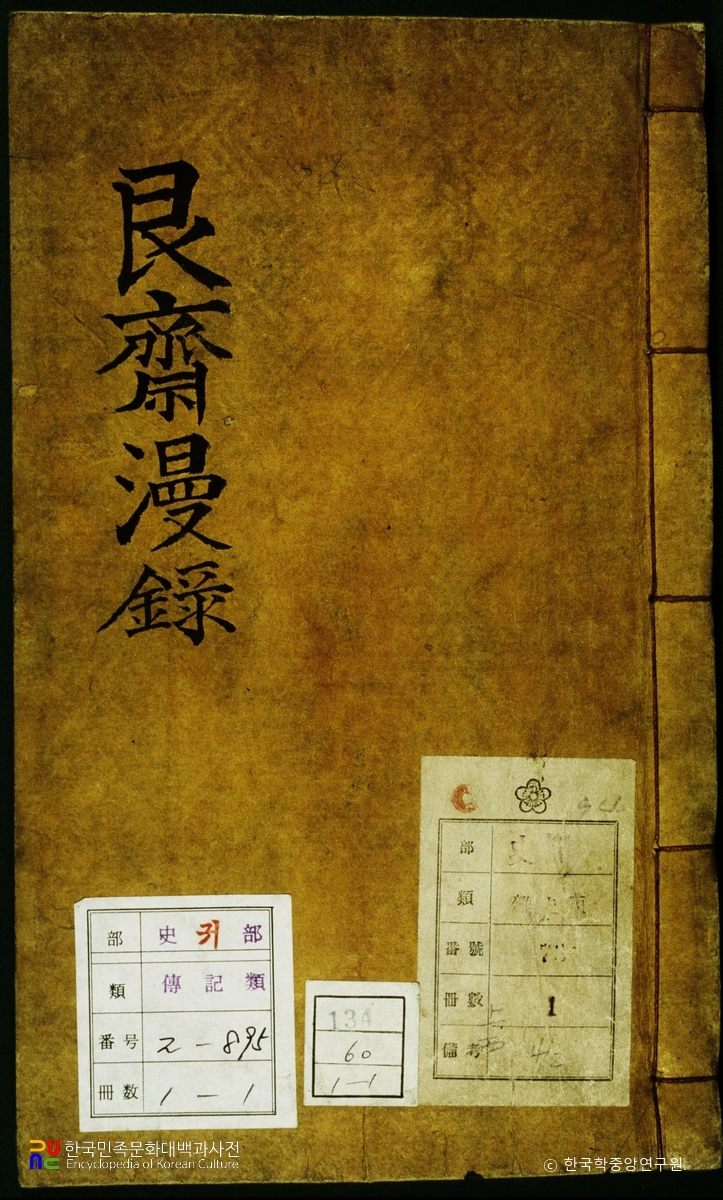 艮齋漫錄
部 史 귀 部
類 傳記類
番号 2-895
冊数 1-1
134
60
1-1
部 史
類
番號
冊數 1
備考
한국민족문화대백과사전
Encyclopedia of Korean Culture
© 한국학중앙연구원